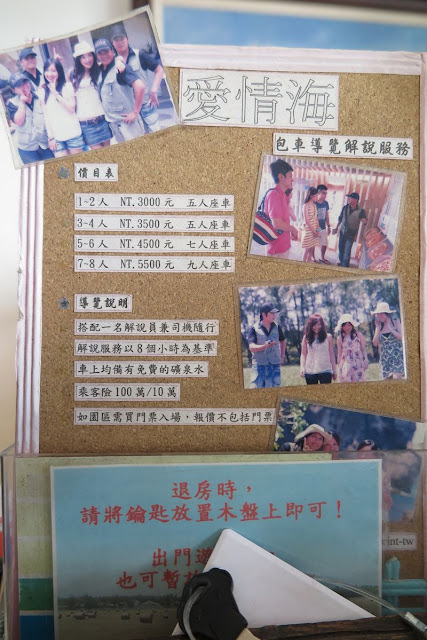 愛情海
包車導覽解說服務
價目表
1~2人 NT.3000元 五人座車
3~4人 NT.3500元 五人座車
5~6人 NT.4500元 七人座車
7~8人 NT.5500元 九人座車
導覽說明
搭配一名解說員兼司機隨行
解說服務以8個小時為基準
車上均備有免費的礦泉水
乘客險100萬/10萬
如園區需買門票入場，報價不包括門票
int-tw
退房時，
請將鑰匙放置木盤上即可！
出門遊
也可暫